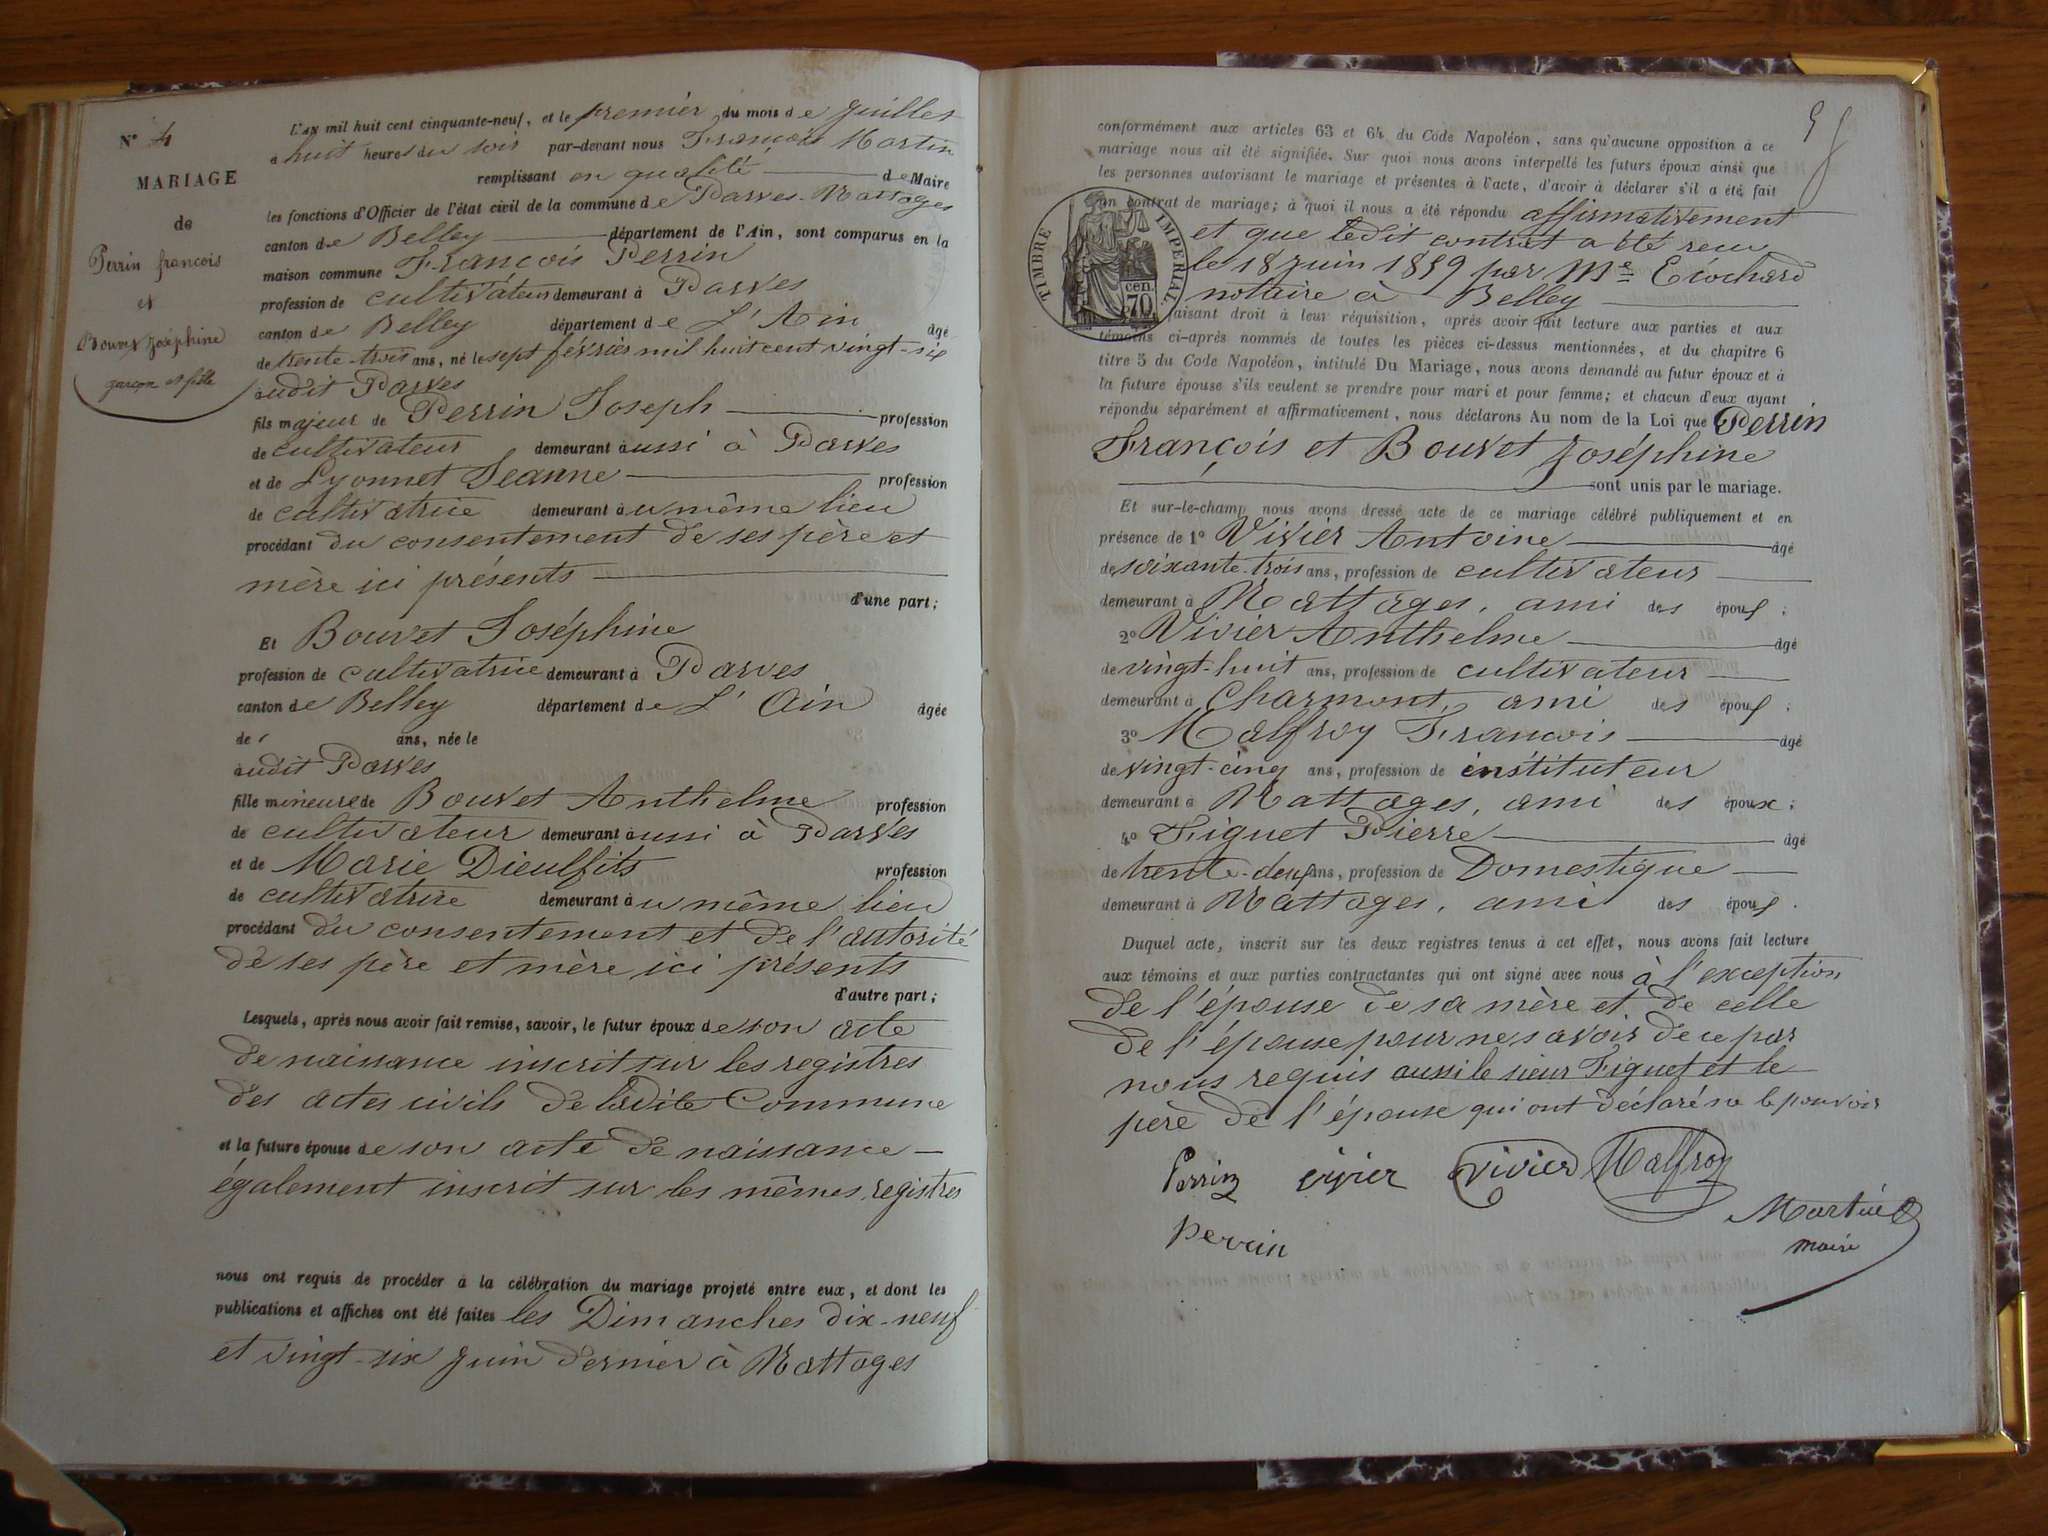 N° 4
MARIAGE
de
Perrin françois
et
Bouvet Joséphine
garçon et fille
L'an mil huit cent cinquante-neuf, et le premier du mois de Juillet
à huit heures du soir par-devant nous François Martin
remplissant en qualité de Maire
les fonctions d'Officier de l'état civil de la commune de Parves-Nattages
canton de Belley département de l'Ain, sont comparus en la
maison commune François Perrin
profession de cultivateur demeurant à Parves
canton de Belley département de L'Ain âgé
de trente-trois ans, né le sept février mil huit cent vingt-six
audit Parves
fils majeur de Perrin Joseph profession
de cultivateur demeurant aussi à Parves
et de Lyonnet Jeanne profession
de cultivatrice demeurant au même lieu
procédant du consentement de ses père et
mère ici présents
d'une part;
Et Bouvet Joséphine
profession de cultivatrice demeurant à Parves
canton de Belley département de L'Ain âgée
de ans, née le
audit Parves
fille mineure de Bouvet Anthelme profession
de cultivateur demeurant aussi à Parves
et de Marie Dieulfits profession
de cultivatrice demeurant au même lieu
procédant du consentement et de l'autorité
de ses père et mère ici présents
d'autre part;
Lesquels, après nous avoir fait remise, savoir, le futur époux de son acte
de naissance inscrit sur les registres
des actes civils de ladite Commune
et la future épouse de son acte de naissance
également inscrit sur les mêmes registres
nous ont requis de procéder à la célébration du mariage projeté entre eux, et dont les
publications et affiches ont été faites les Dimanches dix-neuf
et vingt-six juin dernier à Nattages
conformément aux articles 63 et 64 du Code Napoléon, sans qu'aucune opposition à ce
mariage nous ait été signifiée. Sur quoi nous avons interpellé les futurs époux ainsi que
les personnes autorisant le mariage et présentes à l'acte, d'avoir à déclarer s'il a été fait
un contrat de mariage; à quoi il nous a été répondu affirmativement
et que ledit contrat a été reçu
le 18 juin 1859 par Me
notaire à Belley
TIMBRE IMPERIAL
cen. 70
faisant droit à leur réquisition, après avoir fait lecture aux parties et aux
témoins ci-après nommés de toutes les pièces ci-dessus mentionnées, et du chapitre 6
titre 5 du Code Napoléon, intitulé Du Mariage, nous avons demandé au futur époux et à
la future épouse s'ils veulent se prendre pour mari et pour femme; et chacun d'eux ayant
répondu séparément et affirmativement, nous déclarons Au nom de la Loi que Perrin
François et Bouvet Joséphine
sont unis par le mariage.
Et sur-le-champ nous avons dressé acte de ce mariage célébré publiquement et en
présence de 1° Vivier Antoine âgé
de soixante-trois ans, profession de cultivateur
demeurant à Nattages, ami des époux;
2° Vivier Anthelme âgé
de vingt-huit ans, profession de cultivateur
demeurant à Charmont, ami des époux;
3° Malfroy François âgé
de vingt-cinq ans, profession de instituteur
demeurant à Nattages, ami des époux;
4° Figuet Pierre âgé
de trente-deux ans, profession de Domestique
demeurant à Nattages, ami des époux.
Duquel acte, inscrit sur les deux registres tenus à cet effet, nous avons fait lecture
aux témoins et aux parties contractantes qui ont signé avec nous à l'exception
de l'épouse de sa mère et de celle
de l'épouse pour ne savoir de ce par
nous requis aussi le sieur Figuet et le
père de l'épouse qui ont déclaré ne le pouvoir
Perrin vivier vivier Malfroy
Perrin
Martin
maire